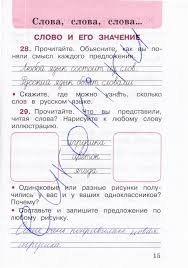 Слова, слова, слова...
СЛОВО И ЕГО ЗНАЧЕНИЕ
28. Прочитайте. Объясните, как вы по-
няли смысл каждого предложения.
Любой язык состоит из слов.
Русский язык богат словами.
• Скажите, где можно узнать, сколько
слов в русском языке.
29. Прочитайте. Что вы представили,
читая слова? Нарисуйте к любому слову
иллюстрацию.
игрушка
цветок
ягода
• Одинаковые или разные рисунки полу-
чились у вас и у ваших одноклассников?
Почему?
• Составьте и запишите предложение по
любому рисунку.
новая
игрушка
15